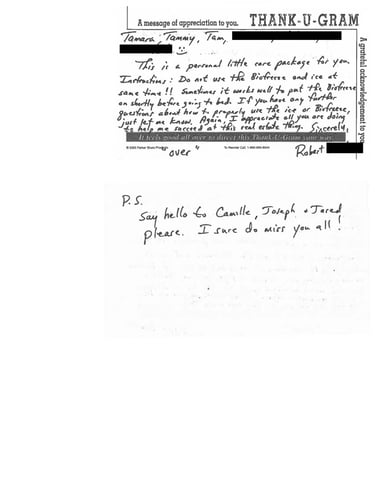 A message of appreciation to you. THANK-U-GRAM
A grateful acknowledgement to you
Tamara, Tammy, Tam,
This is a personal little care package for you.
Instructions: Do not use the Biofreeze and ice at
same time!! Sometimes it works well to put the Biofreeze
on shortly before going to bed. If you have any further
questions about how to properly use the ice or Biofreeze,
just let me know. Again, I appreciate all you are doing
to help me succeed at this real estate thing. Sincerely,
It feels good all over to direct this Thank-U-Gram your way.
"over"
Robert
P.S.
Say hello to Camille, Joseph + Jared
please. I sure do miss you all!